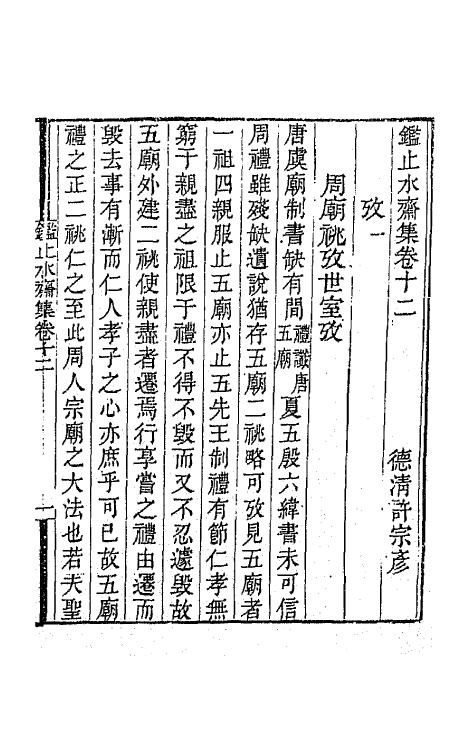 鑑止水齋集卷十二
德淸許宗彥
攷一
周廟祧攷世室攷
唐虞廟制書缺有間禮讖唐五廟夏五殷六緯書未可信
周禮雖殘缺遺說猶存五廟二祧略可攷見五廟者
一祖四親服止五廟亦止五先王制禮有節仁孝無
窮于親盡之祖限于禮不得不毀而又不忍遽毀故
五廟外建二祧使親盡者遷焉行享嘗之禮由遷而
毀去事有漸而仁人孝子之心亦庶乎可已故五廟
禮之正二祧仁之至此周人宗廟之大法也若夫聖
鑑止水齋集卷十二
一